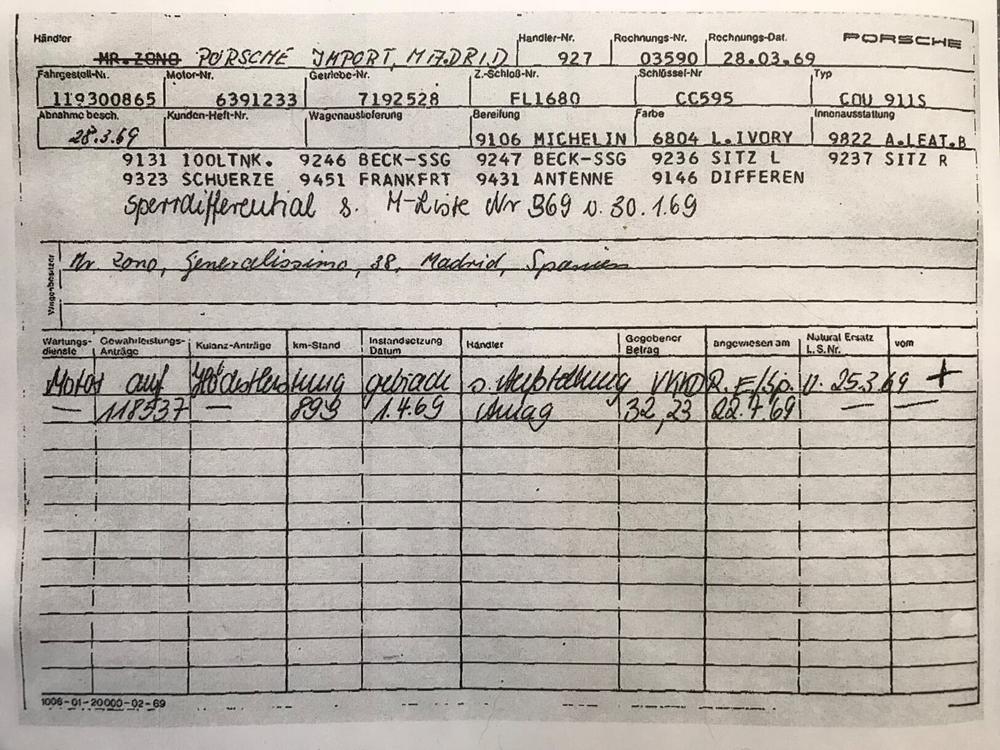 Händler MR. ZONO PORSCHE IMPORT, MADRID Händler-Nr. 927 Rechnungs-Nr. 03590 Rechnungs-Dat. 28.03.69 PORSCHE
Fahrgestell-Nr. Motor-Nr. Getriebe-Nr. Z.-Schloß-Nr. Schlüssel-Nr Typ
119300865 6391233 7192528 FL1680 CC595 COU 911S
Abnahme besch. Kunden-Heft-Nr. Wagenauslieferung Bereifung Farbe Innenausstattung
28.3.69 9106 MICHELIN 6804 L.IVORY 9822 A.LEAT.B
9131 100LTNK. 9246 BECK-SSG 9247 BECK-SSG 9236 SITZ L 9237 SITZ R
9323 SCHUERZE 9451 FRANKFRT 9431 ANTENNE 9146 DIFFEREN
Sperrdifferential s. M-Liste Nr 369 v. 30.1.69
Wagenbesitzer
Mr Zono, Generalissimo, 38, Madrid, Spanien
Wartungs-dienste Gewährleistungs-Anträge Kulanz-Anträge km-Stand Instandsetzung Datum Händler Gegebener Betrag angewiesen am Natural Ersatz L.S.Nr. vom
Motor auf Höchstleistung gebracht s. VKKD R. F/Sp. v. 25.3.69 +
— 118537 — 893 1.4.69 Amag 32,23 22.7.69 — —
1006-01-20000-02-69